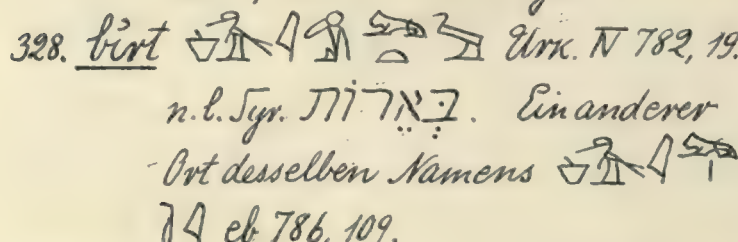 328. bìrt Urk. IV 782, 19.
n. l. Syr. בְּאֵרוֹת. Ein anderer
Ort desselben Namens
eb 786, 109.